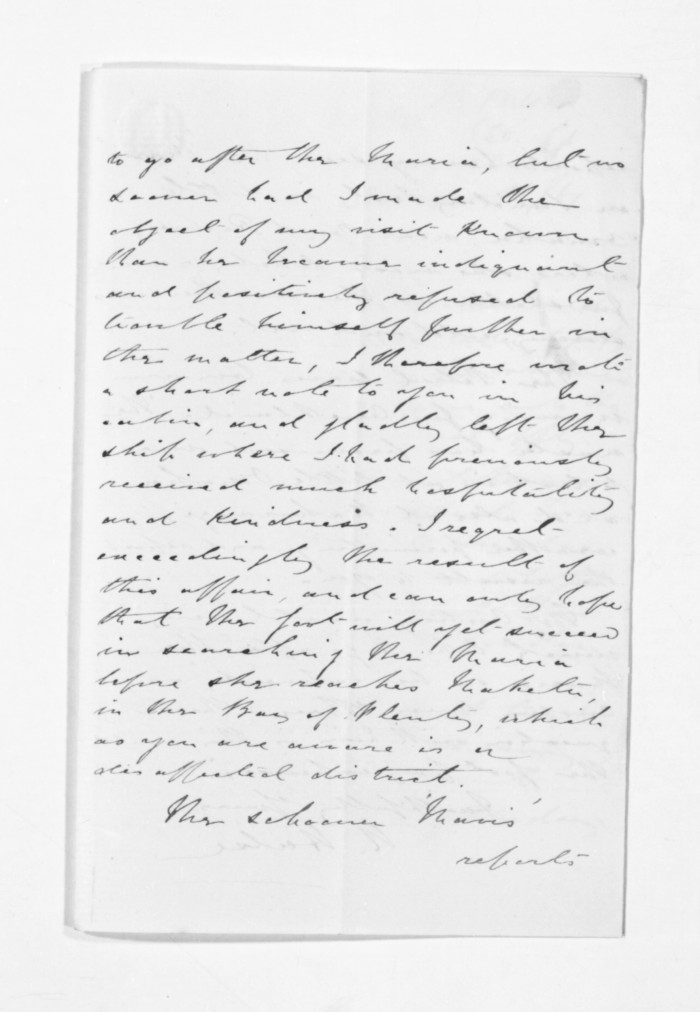 to go after the Maria, but no
sooner had I made the
object of my visit known
than he became indignant
and positively refused to
trouble himself further in
the matter, I therefore wrote
a short note to you in his
cabin, and gladly left the
ship where I had previously
received much hospitality
and kindness. I regret
exceedingly the result of
this affair, and can only hope
that the Govt will yet succeed
in searching the Maria
before she reaches Maketu,
in the Bay of Plenty, which
as you are aware is a
disaffected district.
The schooner 'Mavis'
reports